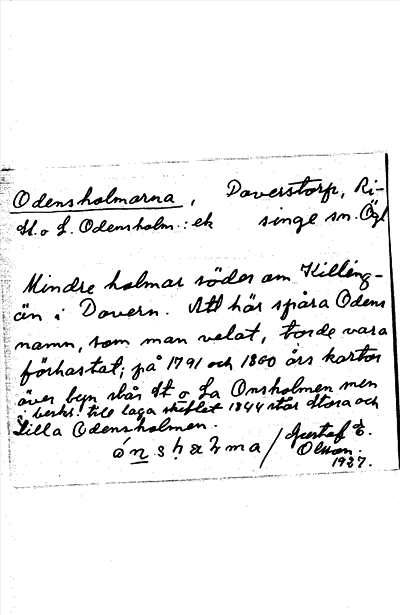 Odensholmarna, Doverstorp, Ri-
St. o L. Odensholm: ek singe sn. Ögl
Mindre holmar söder om Killing-
än i Dovern. Att här spåra Odens
namn, som man velat, torde vara
förhastat; på 1791 och 1860 års kartor
över byn står St o La Onsholmen men
i beskr. till laga skiftet 1844 står Stora och
Lilla Odensholmen.
ónshalma / Gustaf E.
Olsson.
1927.